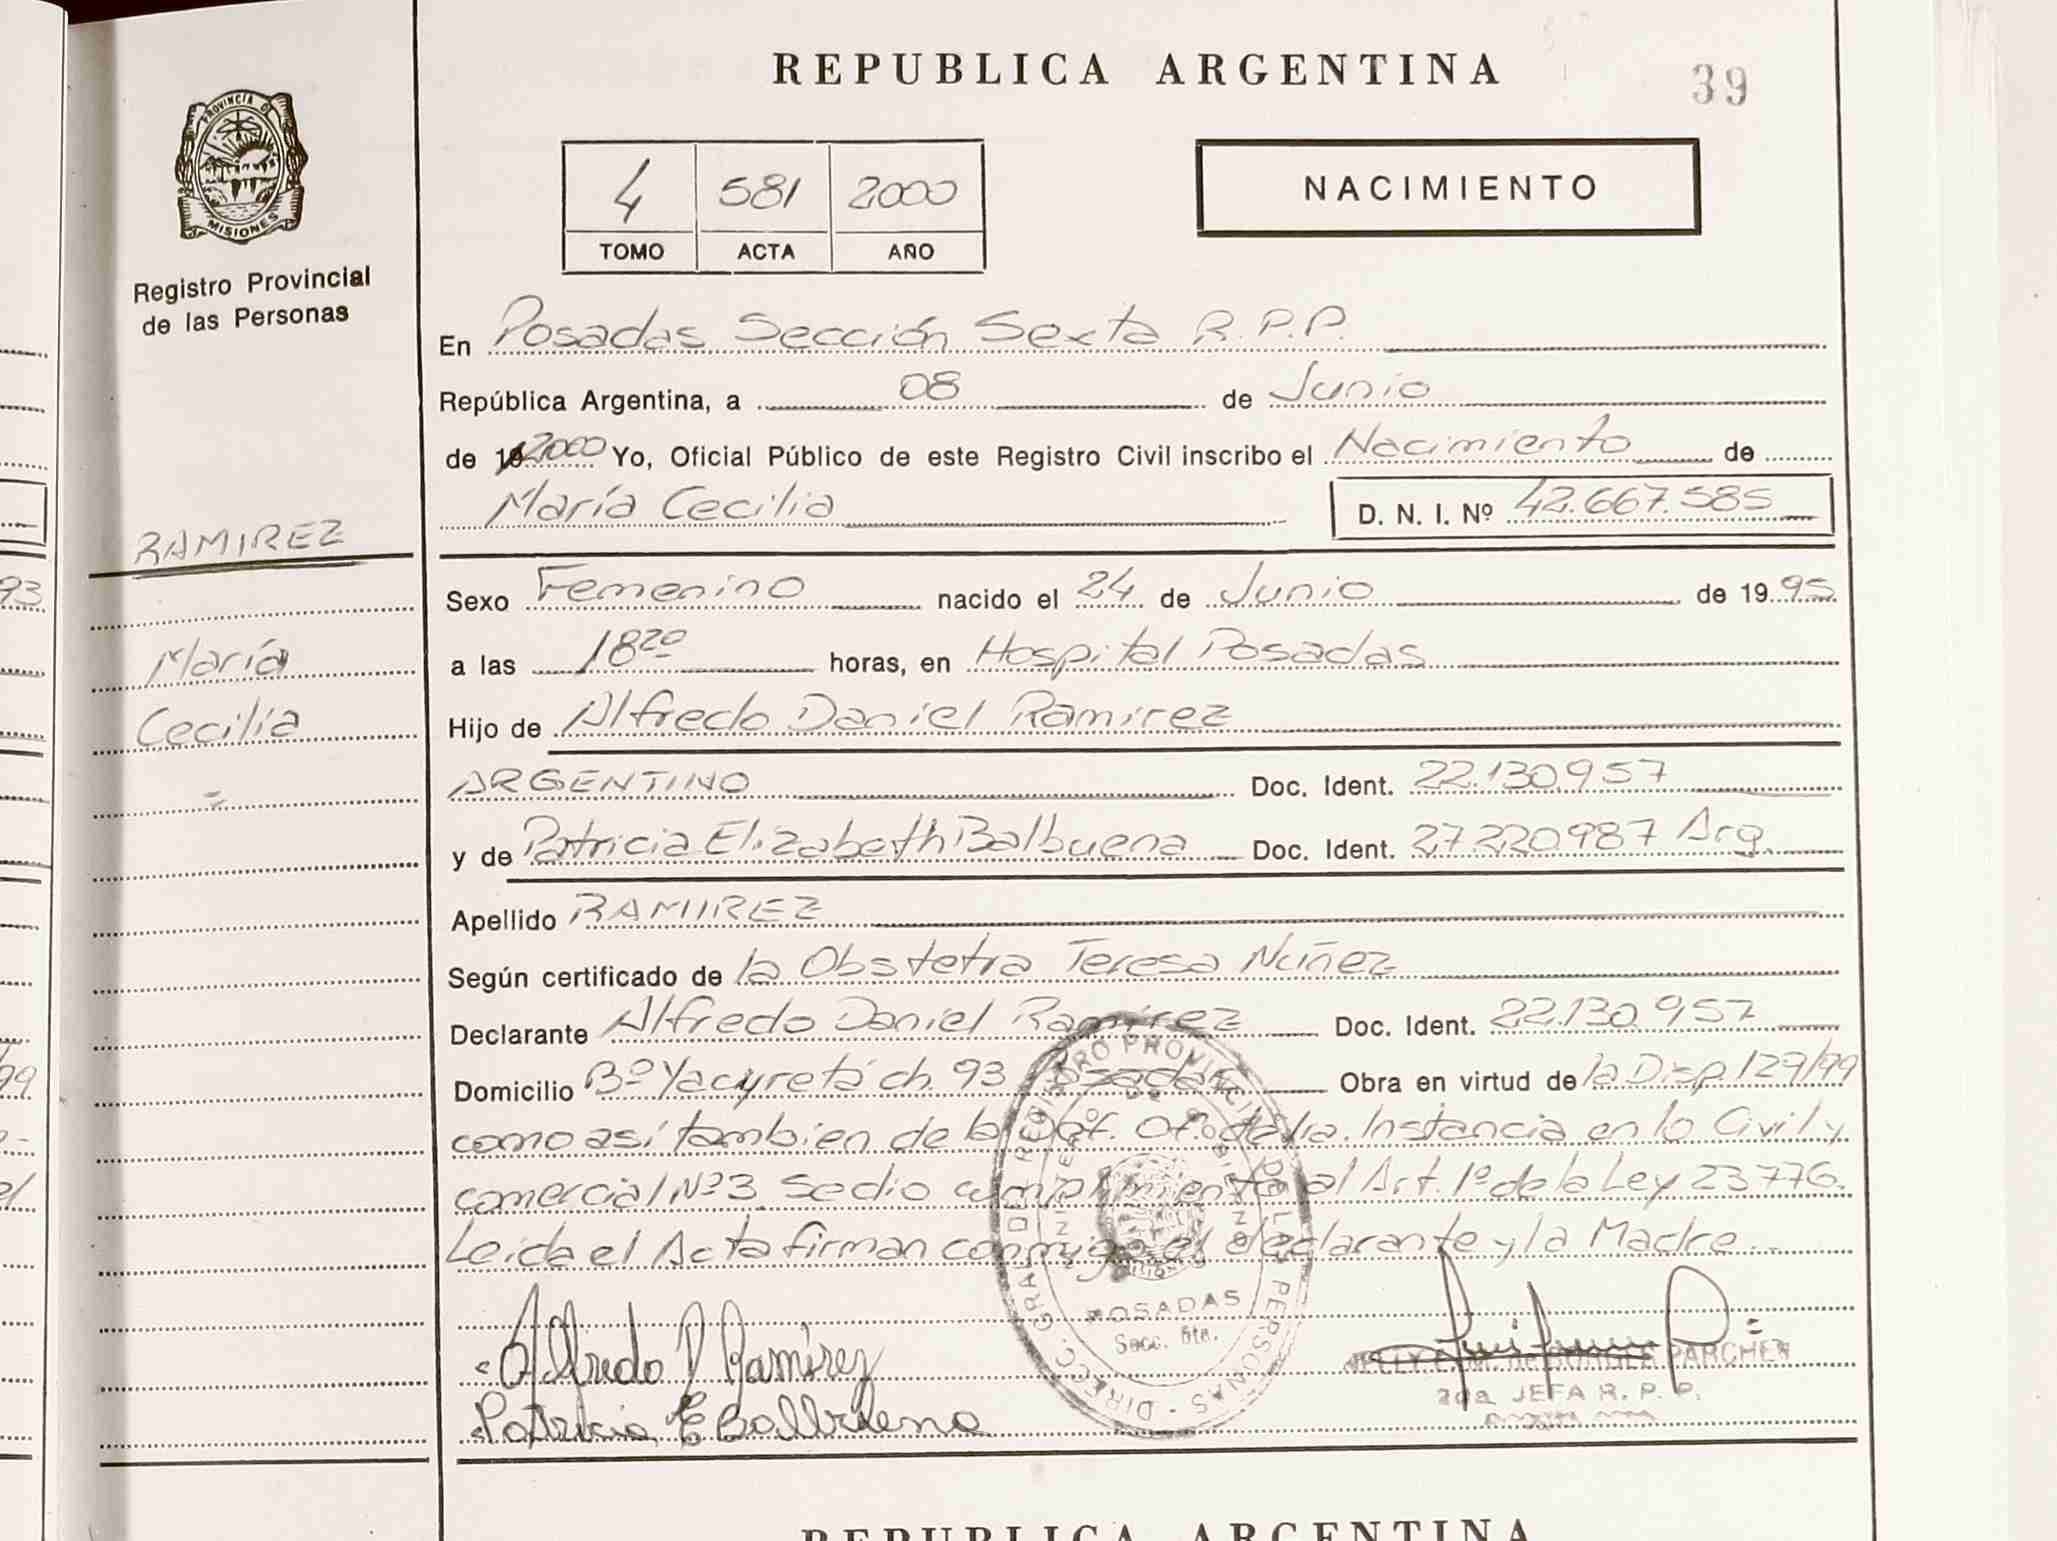 REPUBLICA ARGENTINA
39
PROVINCIA DE
MISIONES
Registro Provincial
de las Personas
4 581 2000
TOMO ACTA AÑO
NACIMIENTO
En Posadas Sección Sexta R.P.P.
República Argentina, a 08 de Junio
de 19 2000 Yo, Oficial Público de este Registro Civil inscribo el Nacimiento de
María Cecilia D. N. I. Nº 42.667.585
RAMIREZ
María
Cecilia
Sexo Femenino nacido el 24 de Junio de 1995
a las 18 20 horas, en Hospital Posadas
Hijo de Alfredo Daniel Ramirez
ARGENTINO Doc. Ident. 22.130.957
y de Patricia Elizabeth Balbuena Doc. Ident. 27.220.987 Arg.
Apellido RAMIREZ
Según certificado de la Obstetra Teresa Núñez
Declarante Alfredo Daniel Ramirez Doc. Ident. 22.130.957
Domicilio Bº Yacyretá ch. 93 Posadas Obra en virtud de la Disp. 129/99
como así tambien de la Def. Of. de 1ra. Instancia en lo Civil y
comercial Nº3 Se dio cumplimiento al Art. 1º de la Ley 23776.
Leída el Acta firman conmigo el declarante y la Madre
DIREC. GRAL. DE REGISTRO PROVINCIAL DE LAS PERSONAS
POSADAS
Secc. 6ta.
Alfredo D Ramírez
Patricia E Balbuena
PARCHEN
2da JEFA R. P. P.
93
REPUBLICA ARGENTINA